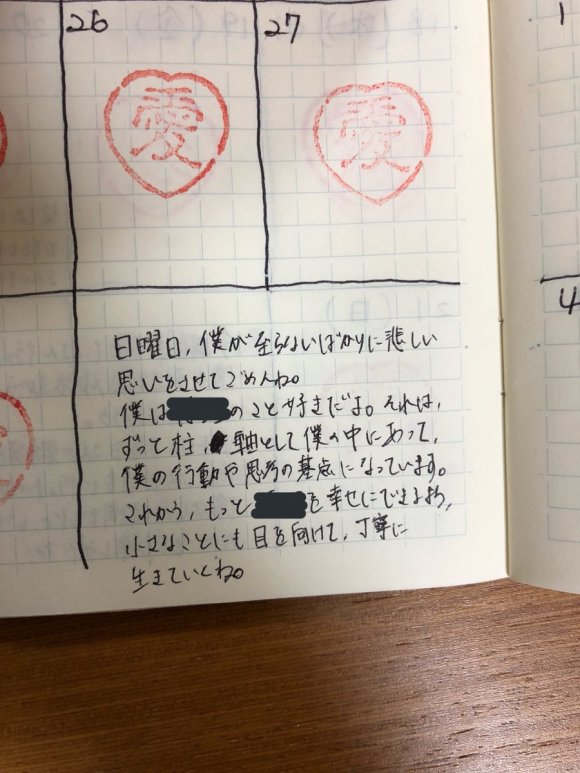 26
27
1
愛
愛
4
日曜日、僕が至らないばかりに悲しい
思いをさせてごめんね。
僕は のこと好きだよ。それは、
ずっと柱、軸として僕の中にあって、
僕の行動や思考の基点になっています。
これから、もっと を幸せにできるよう、
小さなことにも目を向けて、丁寧に
生きていくね。